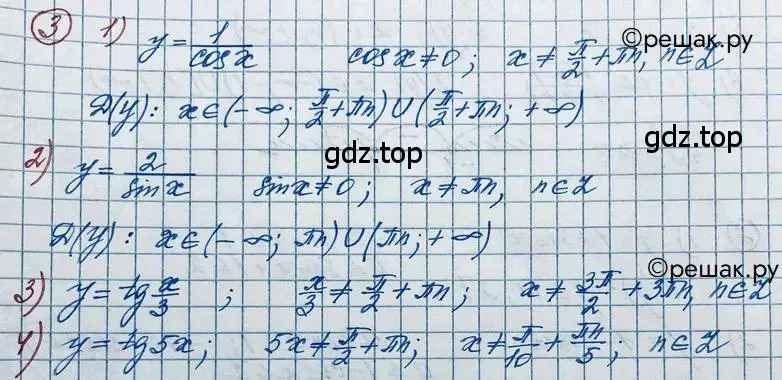 ③ 1) y = 1/cosx   cosx ≠ 0; x ≠ π/2 + πn, n∈Z
©решак.ру
D(y): x∈(-∞; π/2+πn)∪(π/2+πn; +∞)
gdz.top
2) y = 2/sinx   sinx ≠ 0; x ≠ πn, n∈Z
D(y): x∈(-∞; πn)∪(πn; +∞)
gdz.top
©решак.ру
3) y = tg x/3; x/3 ≠ π/2 + πn; x ≠ 3π/2 + 3πn, n∈Z
4) y = tg5x; 5x ≠ π/2 + πn; x ≠ π/10 + πn/5; n∈Z